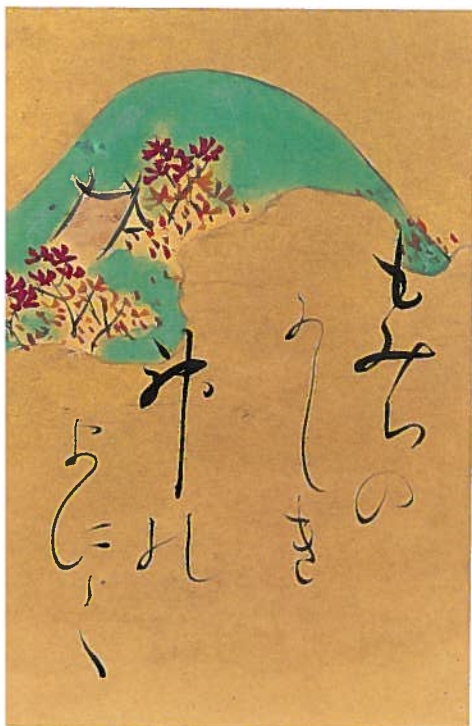 もみちの
にしき
神の
まに〱